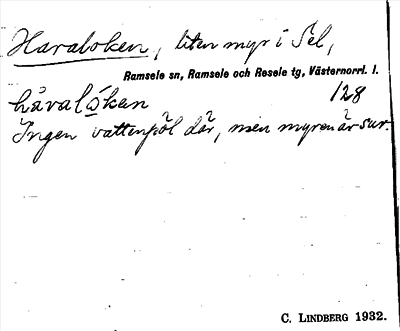 Haraloken, liten myr i Sel,
Ramsele sn, Ramsele och Resele tg, Västernorrl. l.
håralóken 128
Ingen vattenpöl där, men myren är sur.
C. LINDBERG 1932.